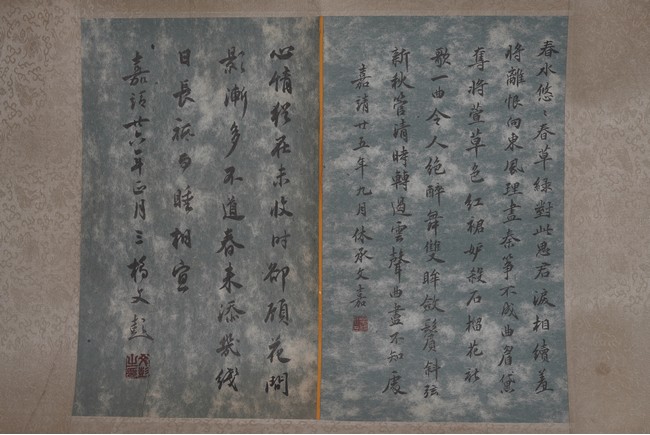 春水悠々春草綠對此思君淚相續羞
將離恨向東風理盡秦箏不成曲眉黛
奪將萱草色紅裙妒殺石榴花新
歌一曲令人絶醉舞雙眸斂鬢斜弦
新秋管清時轉遏雲聲曲盡不知處
嘉靖廿五年九月休承文嘉
心情猶在未收时卻顾花間
影漸多不道春来添幾线
日長祗与睡相宜
嘉靖廿六年正月三橋文彭